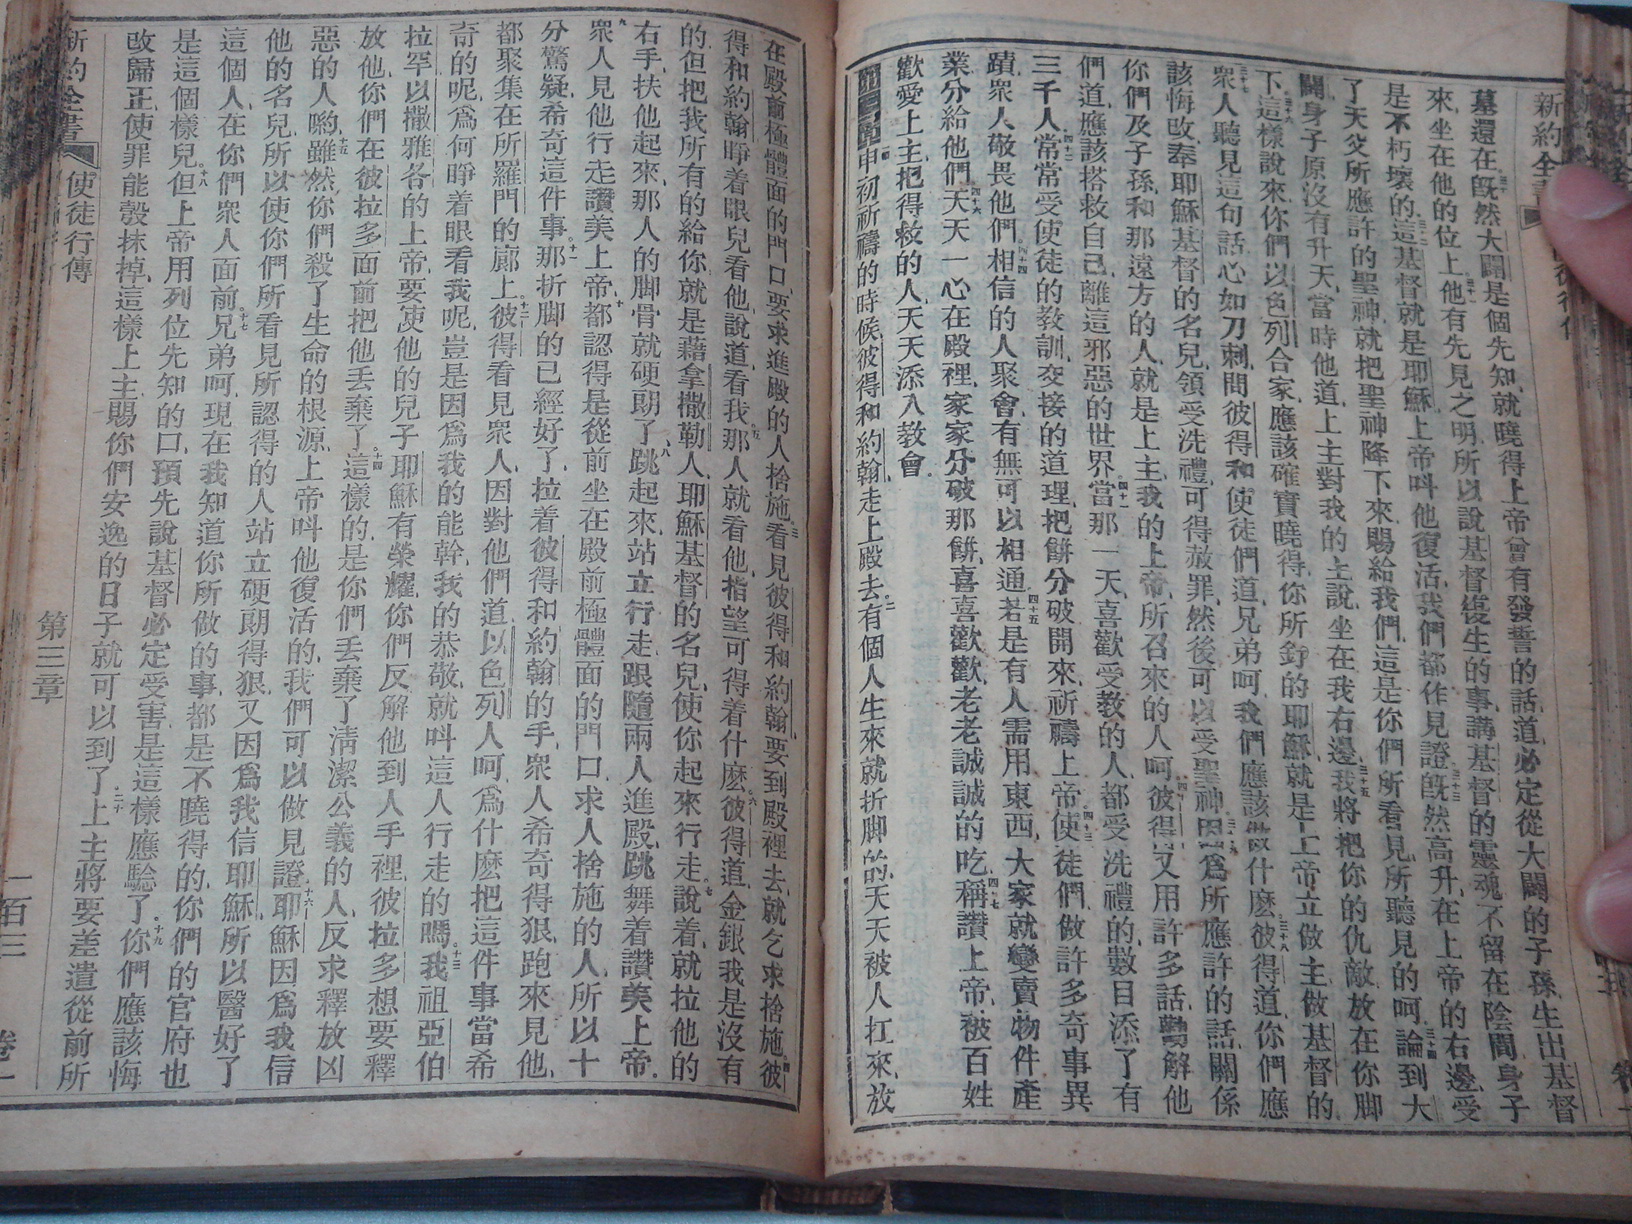 新約全書
墓還在旣然大闢是個先知就曉得上帝會有發誓的話道必定從大闢的子孫生出基督
來坐在他的位上他有先見之明所以說基督復生的事講基督的靈魂不留在陰間身子
是不朽壞的這基督就是耶穌上帝呌他復活我們都作見證旣然高升在上帝的右邊受
了天父所應許的聖神就把聖神降下來賜給我們這是你們所看見所聽見的呵論到大
闢身子原沒有升天當時他道上主對我的主說坐在我右邊我將把你的仇敵放在你脚
下這樣說來你們以色列合家應該確實曉得你所釘的耶穌就是上帝立做主做基督的
衆人聽見這句話心如刀刺問彼得和使徒們道兄弟呵我們應該做什麽彼得道你們應
該悔改奉耶穌基督的名兒領受洗禮可得赦罪然後可以受聖神因爲所應許的話關係
你們及子孫和那遠方的人就是上主我的上帝所召來的人呵彼得又用許多話勸解他
們道應該搭救自己離這邪惡的世界當那一天喜歡受教的人都受洗禮的數目添了有
三千人常常受使徒的教訓交接的道理把餅分破開來祈禱上帝使徒們做許多奇事異
蹟衆人敬畏他們相信的人聚會有無可以相通若是有人需用東西大家就變賣物件產
業分給他們天天一心在殿裡家家分破那餅喜喜歡歡老老誠誠的吃稱讚上帝被百姓
歡愛上主把得救的人天天添入教會
第三章申初祈禱的時候彼得和約翰走上殿去有個人生來就折脚的天天被人扛來放
在殿前極體面的門口要求進殿的人捨施看見彼得和約翰要到殿裡去就乞求捨施彼
得和約翰睜着眼兒看他說道看我那人就看他指望可得着什麽彼得道金銀我是沒有
的但把我所有的給你就是藉拿撒勒人耶穌基督的名兒使你起來行走說着就拉他的
右手扶他起來那人的脚骨就硬朗了跳起來站立行走跟隨兩人進殿跳舞着讚美上帝
衆人見他行走讚美上帝都認得是從前坐在殿前極體面的門口求人捨施的人所以十
分驚疑希奇這件事那折脚的已經好了拉着彼得和約翰的手衆人希奇得狠跑來見他
都聚集在所羅門的廊上彼得看見衆人因對他們道以色列人呵爲什麽把這件事當希
奇的呢爲何睜着眼看我呢豈是因爲我的能幹我的恭敬就呌這人行走的嗎我祖亞伯
拉罕以撒雅各的上帝要使他的兒子耶穌有榮耀你們反解他到人手裡彼拉多想要釋
放他你們在彼拉多面前把他丢棄了這樣的是你們丢棄了淸潔公義的人反求釋放凶
惡的人喲雖然你們殺了生命的根源上帝呌他復活的我們可以做見證耶穌因爲我信
他的名兒所以使你們所看見所認得的人站立硬朗得狠又因爲我信耶穌所以醫好了
這個人在你們衆人面前兄弟呵現在我知道你所做的事都是不曉得的你們的官府也
是這個樣兒但上帝用列位先知的口預先說基督必定受害是這樣應騐了你們應該悔
改歸正使罪能彀抹掉這樣上主賜你們安逸的日子就可以到了上主將要差遣從前所
新約全書 使徒行傳 第三章 一百三 卷一